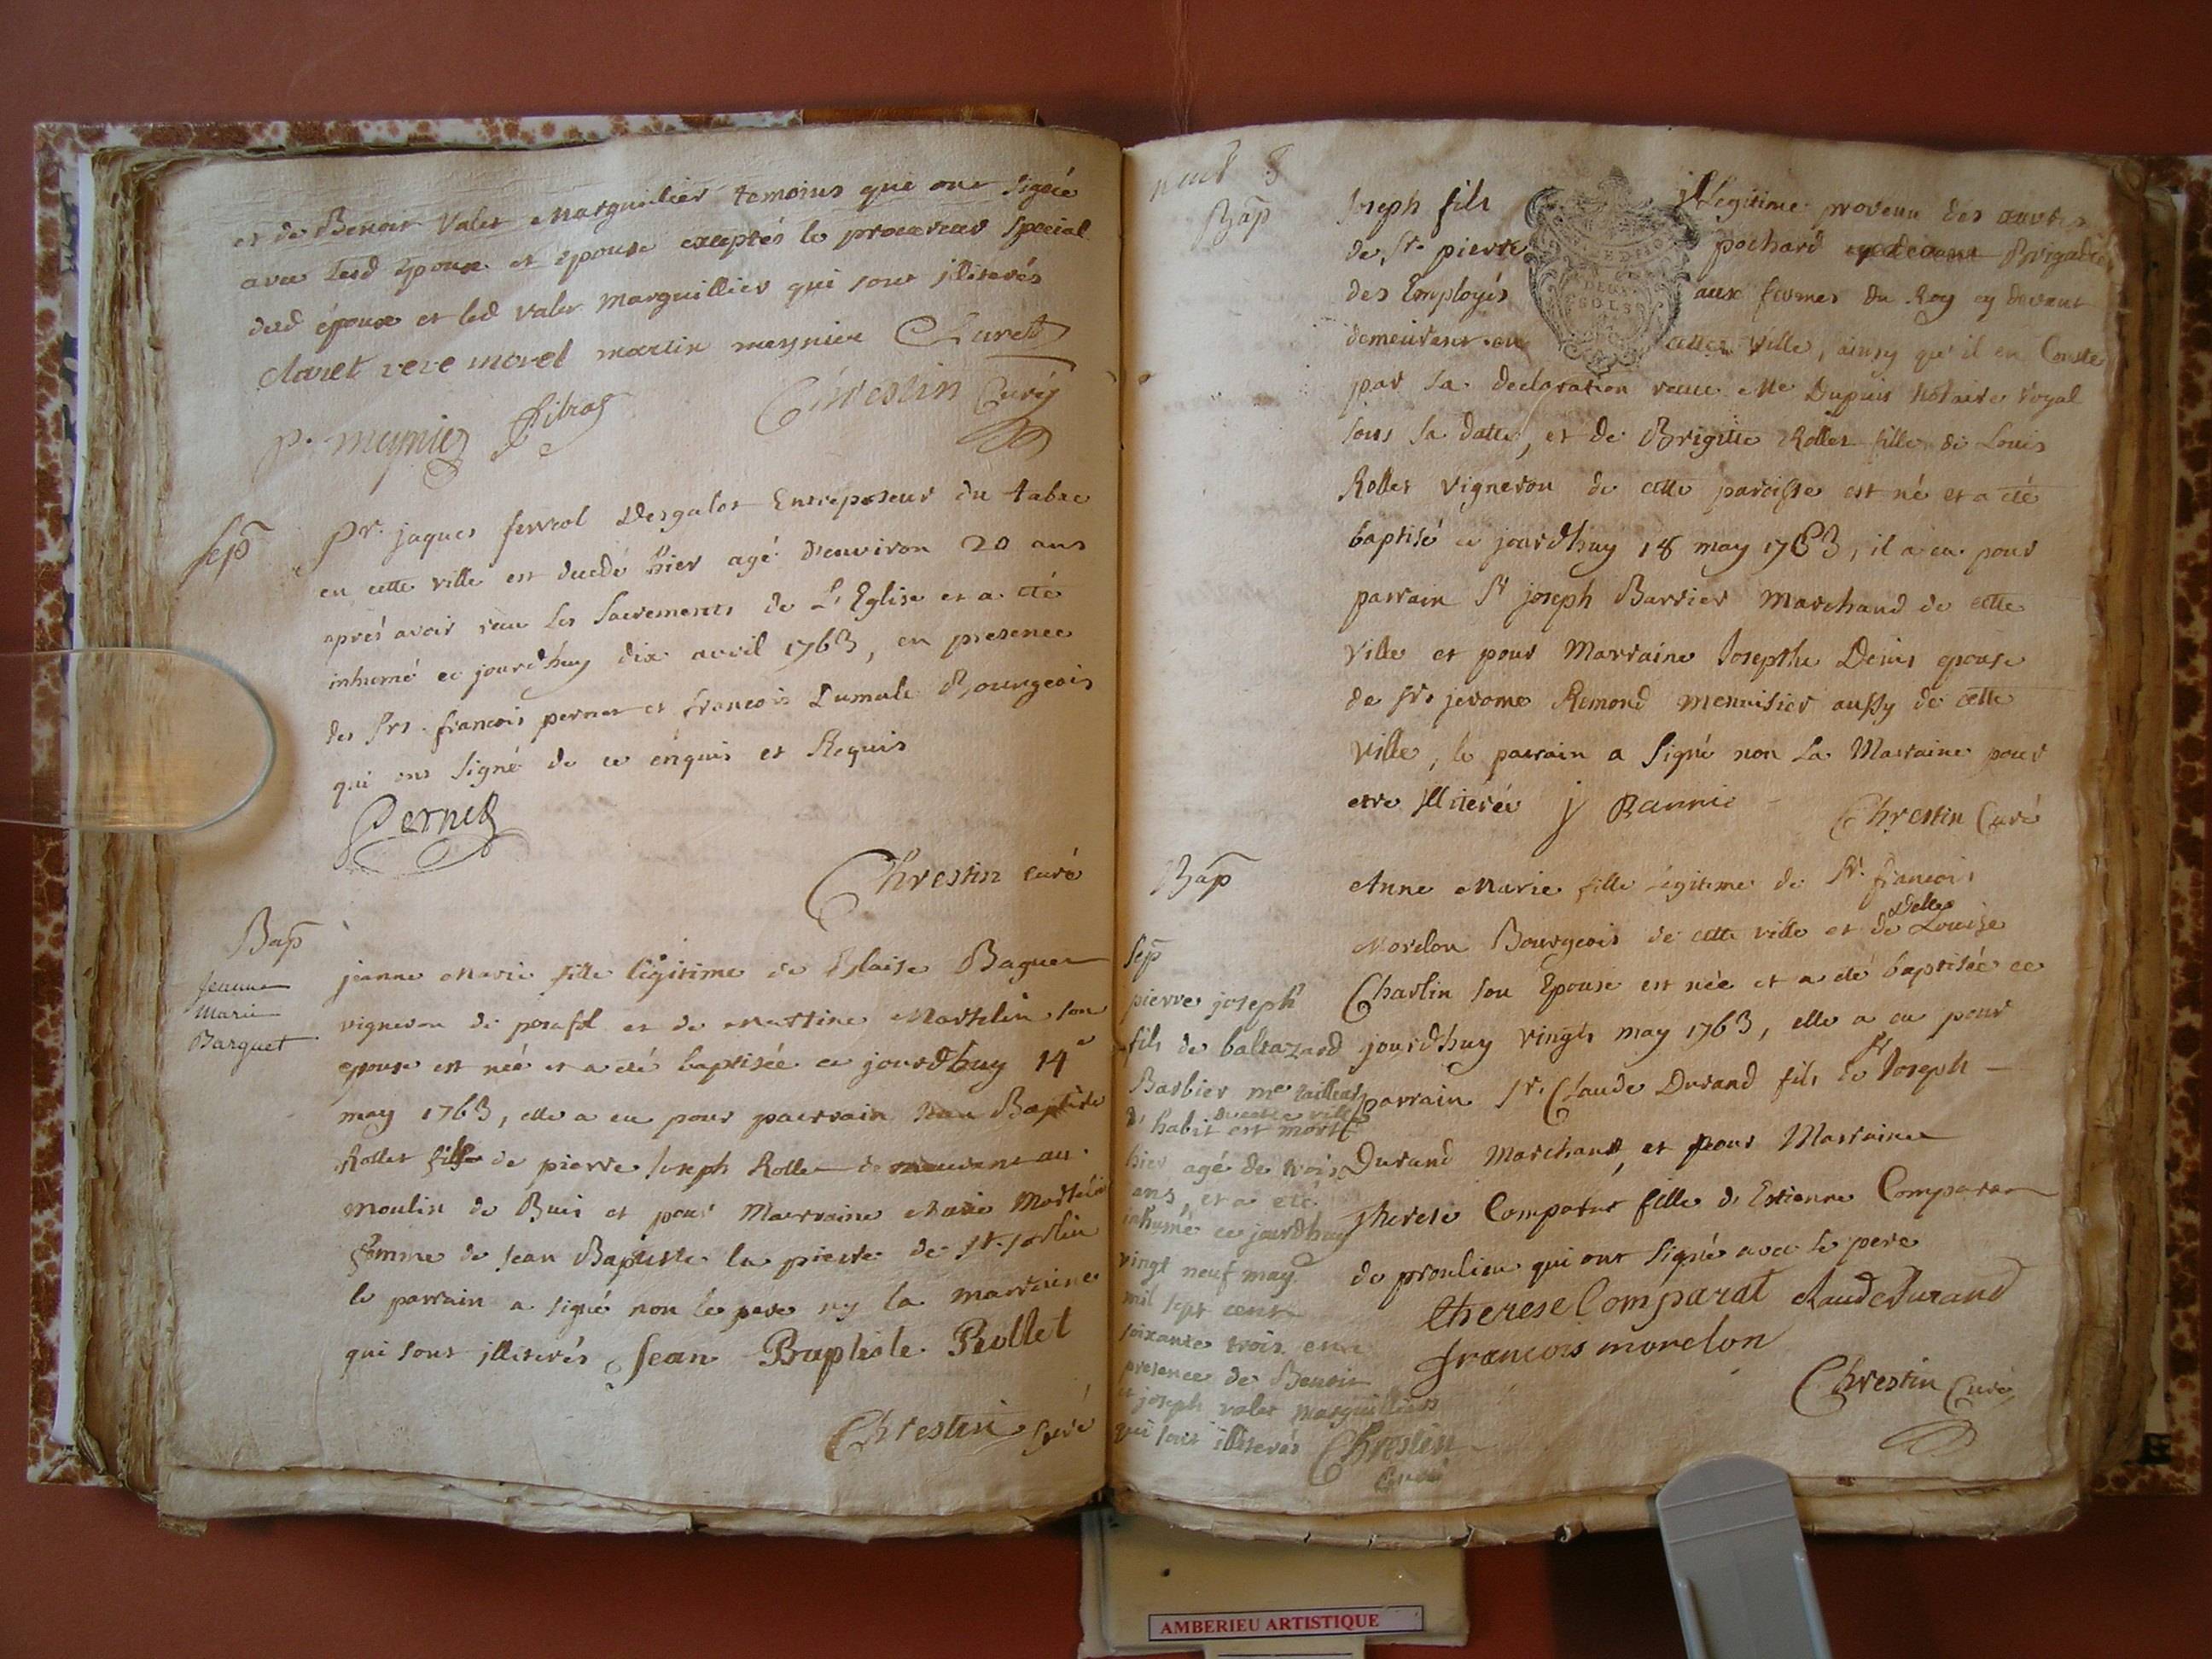 et de Benoit Valet Marguilier temoins qui ont signé
avec lesd époux et épouse exceptés le procureur special
desd époux et led valet marguillier qui sont illiterés
claret rere morel martin meynier Claret
p. meynier Chrestin Curé
Sep
Sr. jaques ferrol Desgalet Entreposeur du tabac
en cette ville est decedé hier agé d'environ 20 ans
aprés avoir reçu les Sacrements de L'Eglise et a été
inhumé ce jourdhuy dix avril 1763, en presence
des Srs. françois pernet et françois Dumole Bourgeois
qui ont signé de ce enquis et Requis
Pernet
Chrestin curé
Bap
Jeanne
Marie
Barquet
jeanne Marie fille légitime de Blaise Baguet
vigneron de posafol et de Martine Martelin son
epouse est née et a été baptisée ce jourdhuy 14e
may 1763, elle a eu pour parrain Jean Baptiste
Rollet fils de pierre Joseph Rollet demeurant au
Moulin de Buis et pour Marraine Marie Martelin
femme de Jean Baptiste la pierre de St. Sorlin
le parrain a signé non le pere ny la marraine
qui sont illiterés Jean Baptiste Rollet
Chrestin Curé
neuf 8
Bap
Joseph fils illegitime provenu des œuvres
de Sr. pierre pochard cydevant Brigadier
des Employés aux fermes du Roy cy devant
demeurant en cette ville, ainsy qu'il en Conste
par sa declaration reçue Me Dupuis Notaire royal
sous sa datte, et de Brigitte Rollet fille de Louis
Rollet vigneron de cette paroisse est né et a été
baptisé ce jourdhuy 18 may 1763, il a eu pour
parrain Sr joseph Barrier Marchand de cette
ville et pour Marraine Josepthe Denis epouse
de Sr. jerome Remond menuisier aussy de cette
ville, le parrain a signé non la Marraine pour
etre illiterée j Bannie Chrestin Curé
Bap
Anne Marie fille légitime de Sr. françois
Morelon Bourgeois de cette ville et de Delle Louise
Charlin son Epouse est née et a été baptisée ce
jourdhuy vingts may 1763, elle a eu pour
parrain Sr. Claude Durand fils de Sr Joseph
Durand Marchand, et pour Marraine
Therese Comparat fille d'Estienne Comparat
de proulieu qui ont signé avec le pere
therese Comparat claude durand
françois morelon
Chrestin Curé
Sep
pierre joseph
fils de baltazard
Barbier me tailleur
d'habit de cette ville est mort
hier agé de trois
ans, et a été
inhumé ce jourdhuy
vingt neuf may
mil sept cent
soixante trois en
presence de Benoit
et joseph valet Marguilliers
qui sont illiterés Chrestin
Curé
AMBERIEU ARTISTIQUE